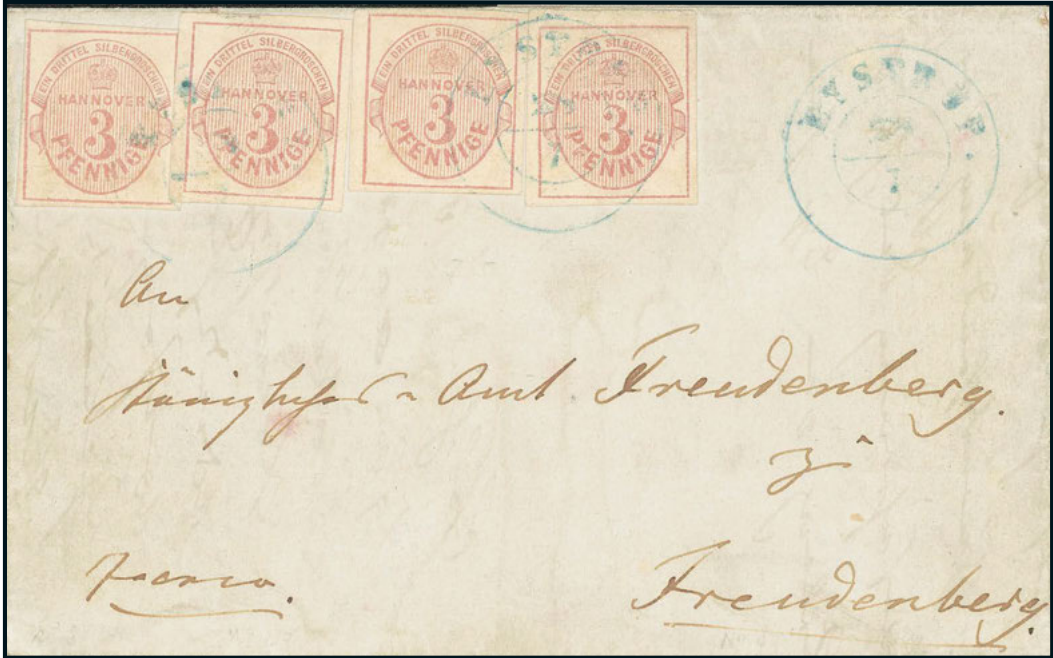 EIN DRITTEL SILBERGROSCHEN
HANNOVER
3
PFENNIGE
EIN DRITTEL SILBERGROSCHEN
HANNOVER
3
PFENNIGE
EIN DRITTEL SILBERGROSCHEN
HANNOVER
3
PFENNIGE
EIN DRITTEL SILBERGROSCHEN
HANNOVER
3
PFENNIGE
EYSTRUP.
An
Königliches Amt Freudenberg.
zu
Freudenberg.
franco.